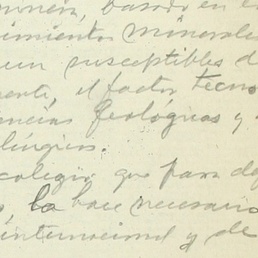 basado en
imientos minerale
un susceptibles d
el factor tecno
encias geológicas y
lúrgicos.
colegio que para de
la base necesaria
internacional y de